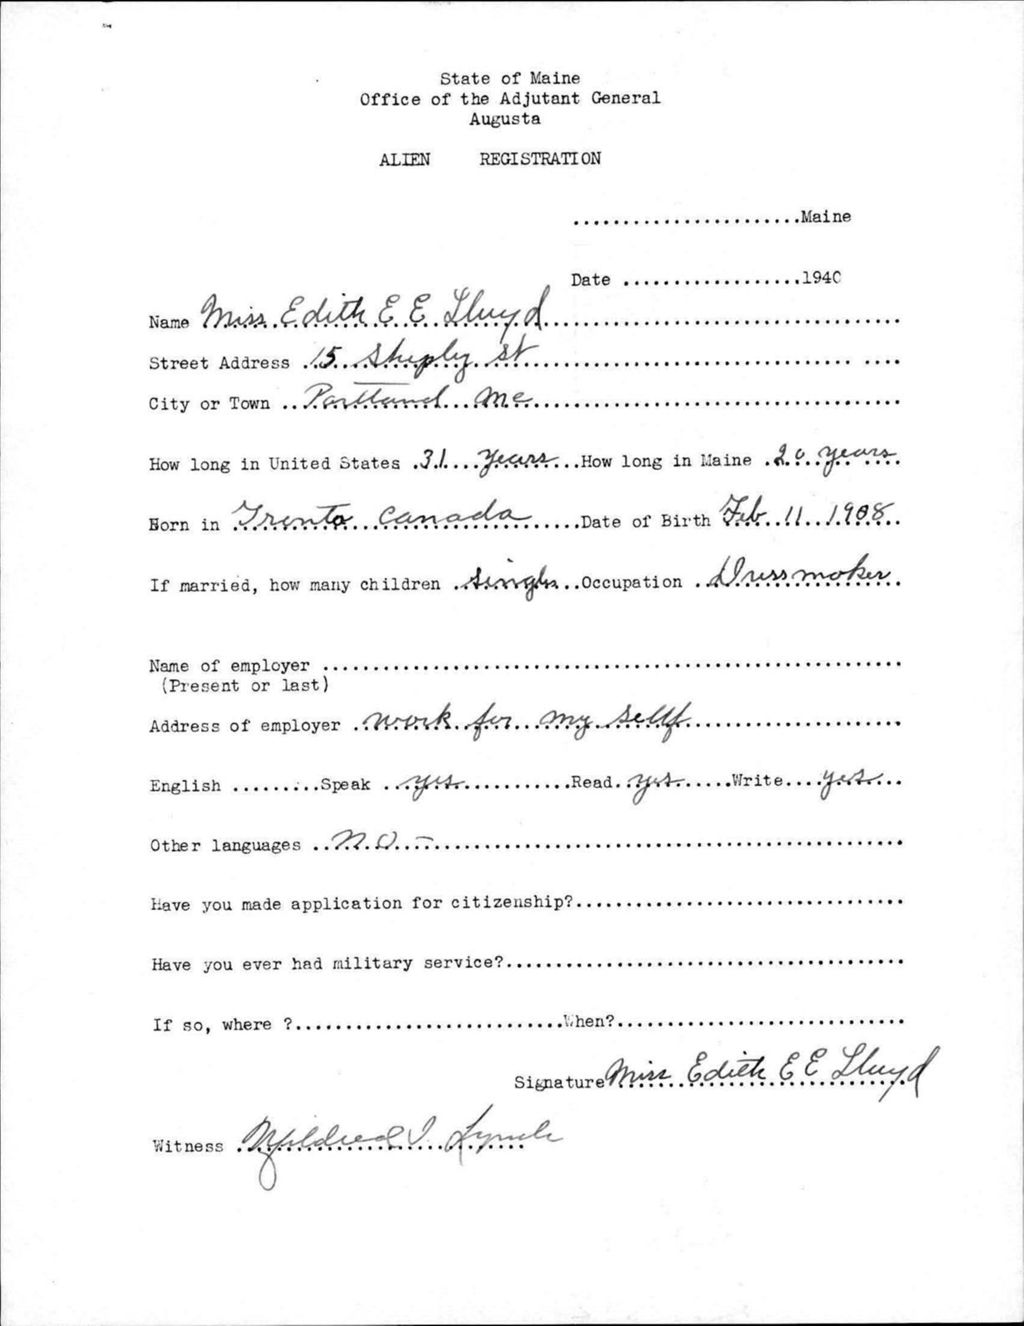 State of Maine
Office of the Adjutant General
Augusta
ALIEN REGISTRATION
.......................Maine
Date ..................1940
Name Miss Edith E E Lloyd
Street Address 15 Sheply St
City or Town Portland Me
How long in United States 31 years How long in Maine 20 years
Born in Tronto Canada Date of Birth Feb 11 1908
If married, how many children single Occupation Dressmaker
Name of employer
(Present or last)
Address of employer work for my sellf
English Speak yes Read yes Write yes
Other languages No -
Have you made application for citizenship?
Have you ever had military service?
If so, where ? When?
Signature Miss Edith E E Lloyd
Witness Mildred I. Lynch